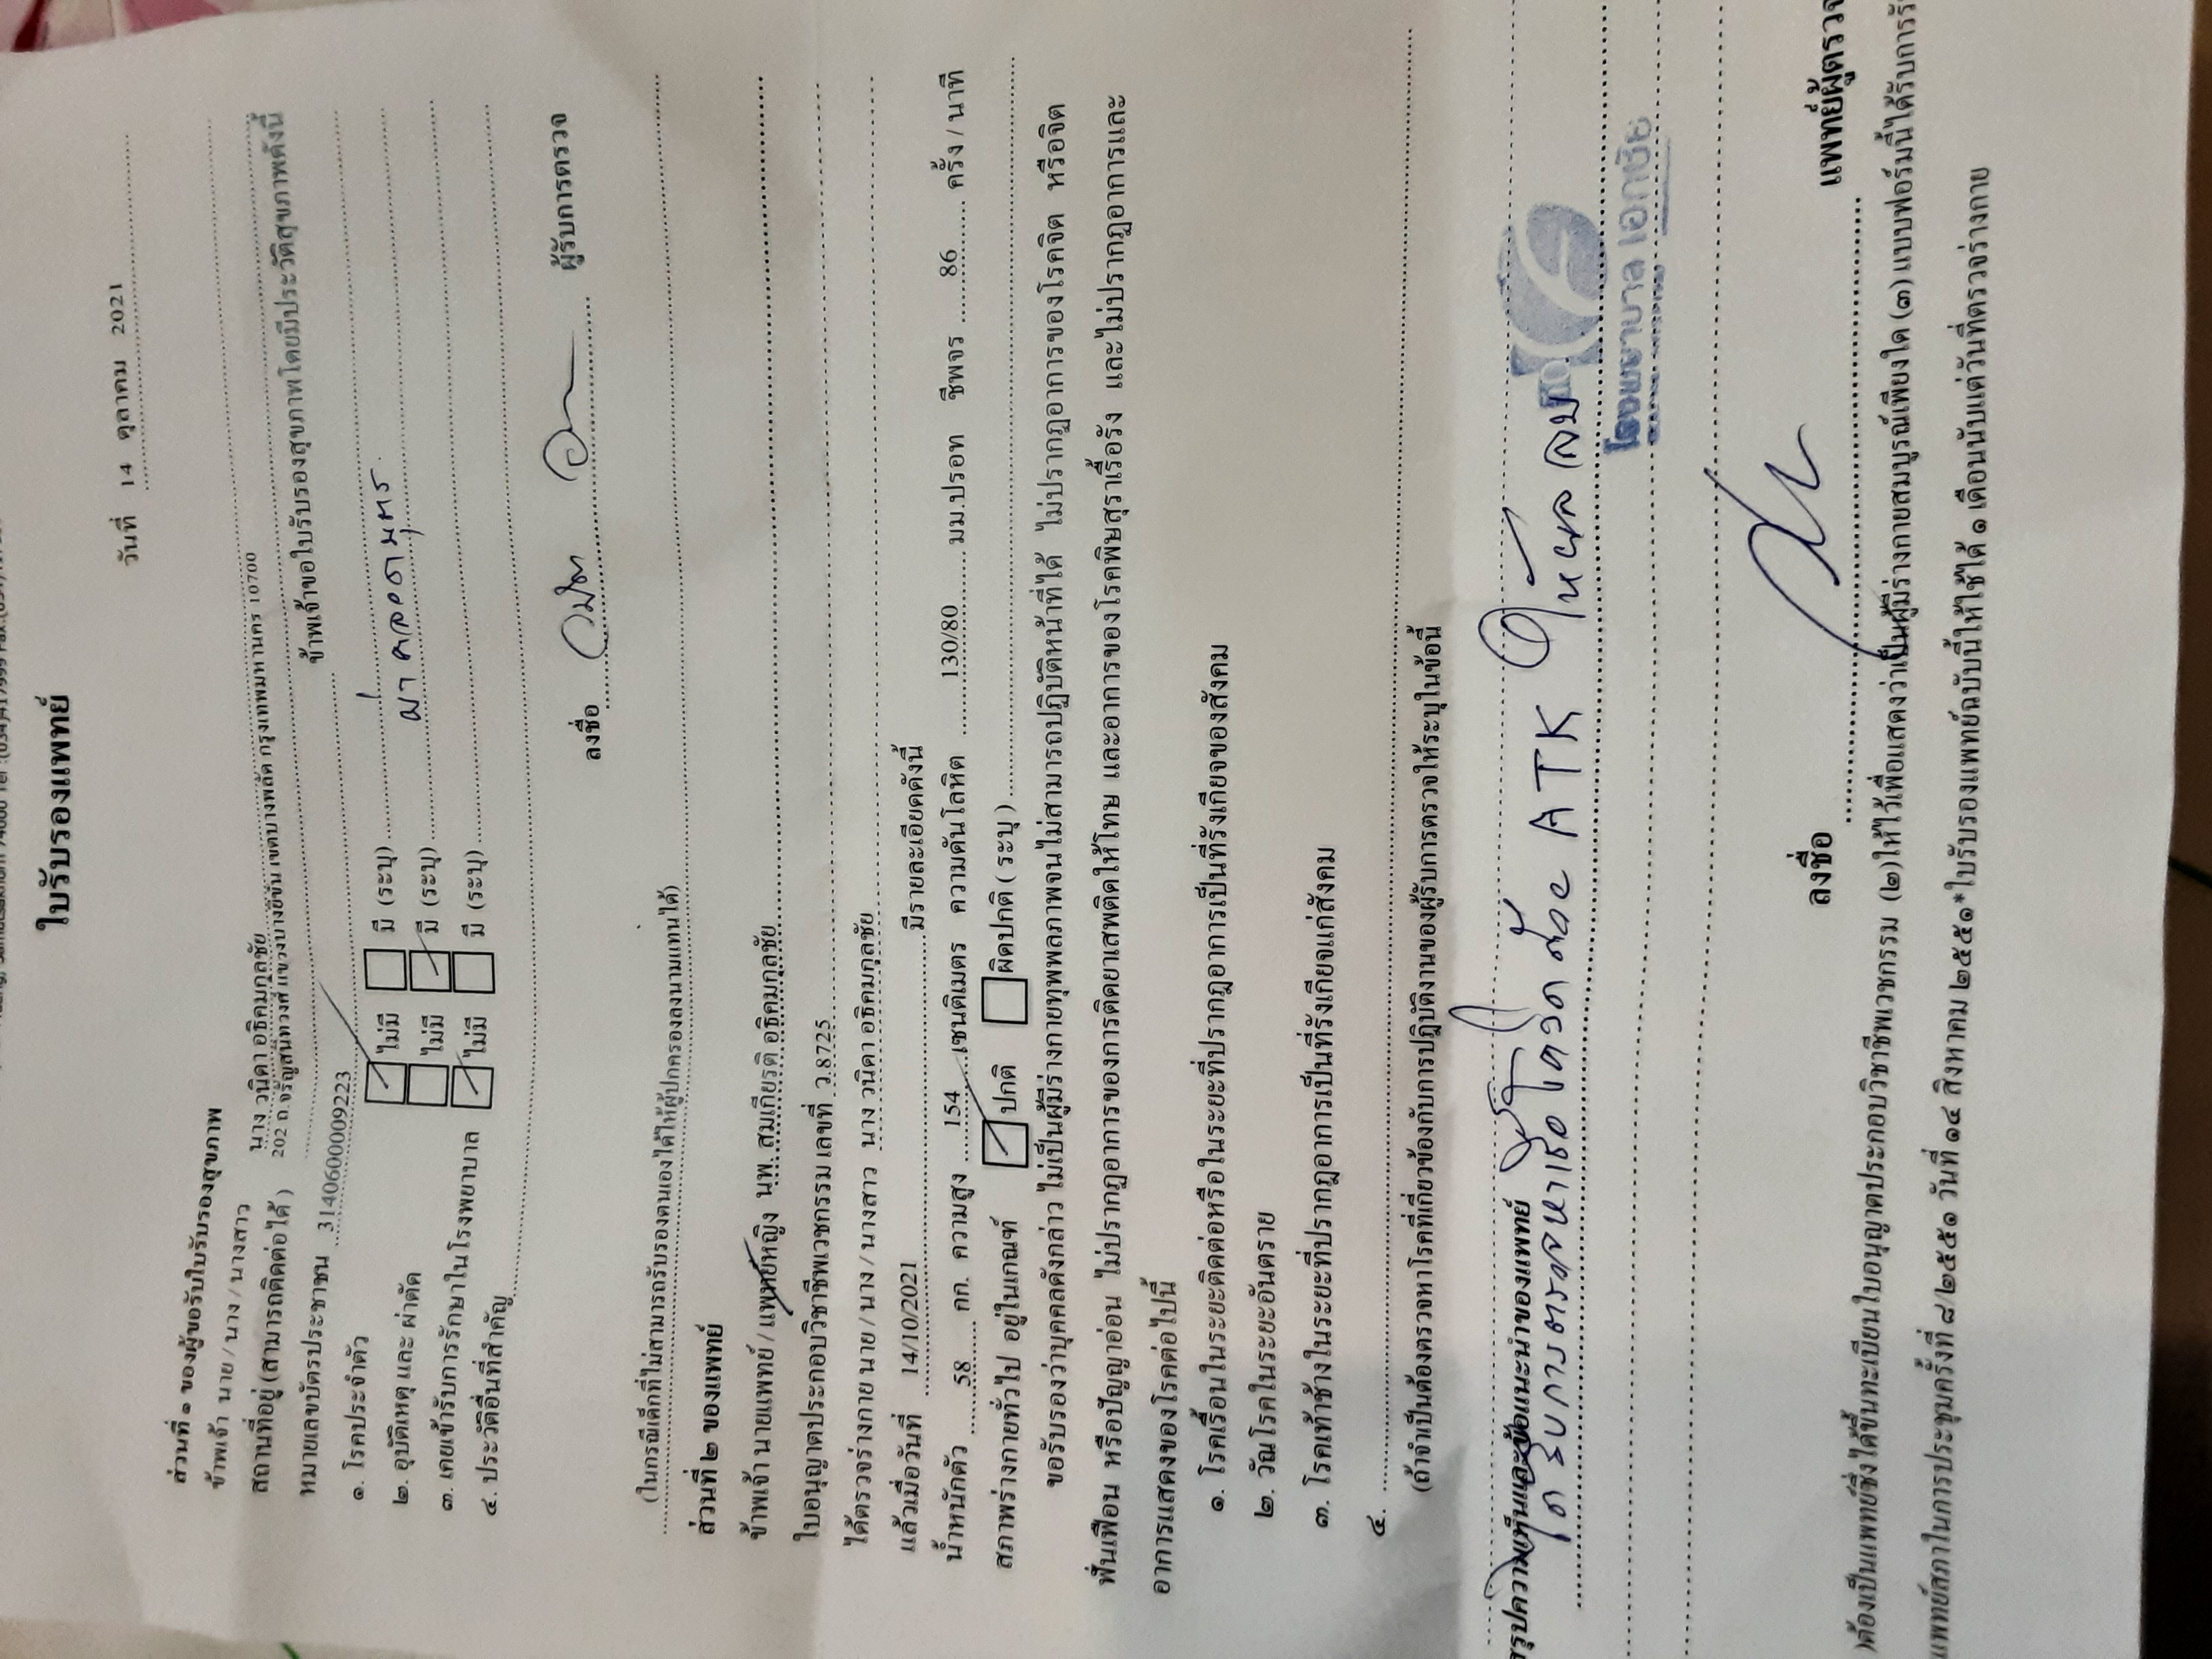 Samutsakhorn 74000 Tel :(034)417999 Fax.
ใบรับรองแพทย์
วันที่ 14 ตุลาคม 2021
ส่วนที่ ๑ ของผู้ขอรับใบรับรองสุขภาพ
ข้าพเจ้า นาย / นาง / นางสาว นาง วนิดา อธิคมกุลชัย
สถานที่อยู่ (สามารถติดต่อได้ ) 202 ถ.จรัญสนิทวงศ์ แขวงบางยี่ขัน เขตบางพลัด กรุงเทพมหานคร 10700
หมายเลขบัตรประชาชน 3140600009223 ข้าพเจ้าขอใบรับรองสุขภาพโดยมีประวัติสุขภาพดังนี้
๑. โรคประจำตัว ไม่มี มี (ระบุ)
๒. อุบัติเหตุ และ ผ่าตัด ไม่มี มี (ระบุ) ผ่าคลอดบุตร
๓. เคยเข้ารับการรักษาในโรงพยาบาล ไม่มี มี (ระบุ)
๔. ประวัติอื่นที่สำคัญ
ลงชื่อ ผู้รับการตรวจ
(ในกรณีเด็กที่ไม่สามารถรับรองตนเองได้ให้ผู้ปกครองลงนามแทนได้)
ส่วนที่ ๒ ของแพทย์
ข้าพเจ้า นายแพทย์ / แพทย์หญิง นพ. สมเกียรติ อธิคมกุลชัย
ใบอนุญาตประกอบวิชาชีพเวชกรรม เลขที่ ว.8725
ได้ตรวจร่างกาย นาย / นาง / นางสาว นาง วนิดา อธิคมกุลชัย
แล้วเมื่อวันที่ 14/10/2021 มีรายละเอียดดังนี้
น้ำหนักตัว 58 กก. ความสูง 154 เซนติเมตร ความดันโลหิต 130/80 มม.ปรอท ชีพจร 86 ครั้ง / นาที
สภาพร่างกายทั่วไป อยู่ในเกณฑ์ ปกติ ผิดปกติ ( ระบุ )
ขอรับรองว่าบุคคลดังกล่าว ไม่เป็นผู้มีร่างกายทุพพลภาพจนไม่สามารถปฏิบัติหน้าที่ได้ ไม่ปรากฏอาการของโรคจิต หรือจิต
ฟั่นเฟือน หรือปัญญาอ่อน ไม่ปรากฏอาการของการติดยาเสพติดให้โทษ และอาการของโรคพิษสุราเรื้อรัง และไม่ปรากฏอาการและ
อาการแสดงของโรคต่อไปนี้
๑. โรคเรื้อนในระยะติดต่อหรือในระยะที่ปรากฏอาการเป็นที่รังเกียจของสังคม
๒. วัณโรคในระยะอันตราย
๓. โรคเท้าช้างในระยะที่ปรากฏอาการเป็นที่รังเกียจแก่สังคม
๔.
(ถ้าจำเป็นต้องตรวจหาโรคที่เกี่ยวข้องกับการปฏิบัติงานของผู้รับการตรวจให้ระบุในข้อนี้
สรุปความเห็นและข้อแนะนำของแพทย์
ได้รับการตรวจหาเชื้อโควิดด้วย ATK ให้ผลลบ
โรงพยาบาล เอกชัย
ลงชื่อ แพทย์ผู้ตรวจ
)ต้องเป็นแพทย์ซึ่งได้ขึ้นทะเบียนใบอนุญาตประกอบวิชาชีพเวชกรรม (๒)ให้ไว้เพื่อแสดงว่าเป็นผู้มีร่างกายสมบูรณ์เพียงใด (๓) แบบฟอร์มนี้ได้รับการรั
แพทย์สภาในการประชุมครั้งที่ ๘/๒๕๕๑ วันที่ ๑๔ สิงหาคม ๒๕๕๑*ใบรับรองแพทย์ฉบับนี้ให้ใช้ได้ ๑ เดือนนับแต่วันที่ตรวจร่างกาย